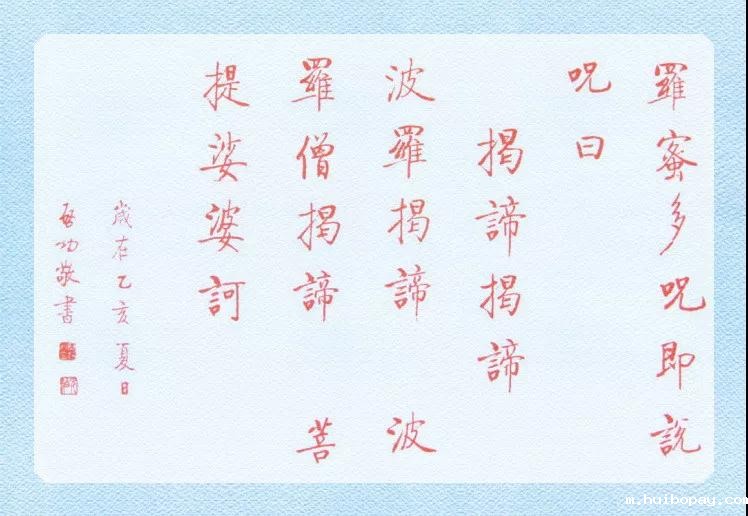 羅蜜多呪即說
呪曰
揭諦揭諦
波羅揭諦 波
羅僧揭諦 菩
提娑婆訶
歲在乙亥夏日
啓功敬書
m.huibopay.com